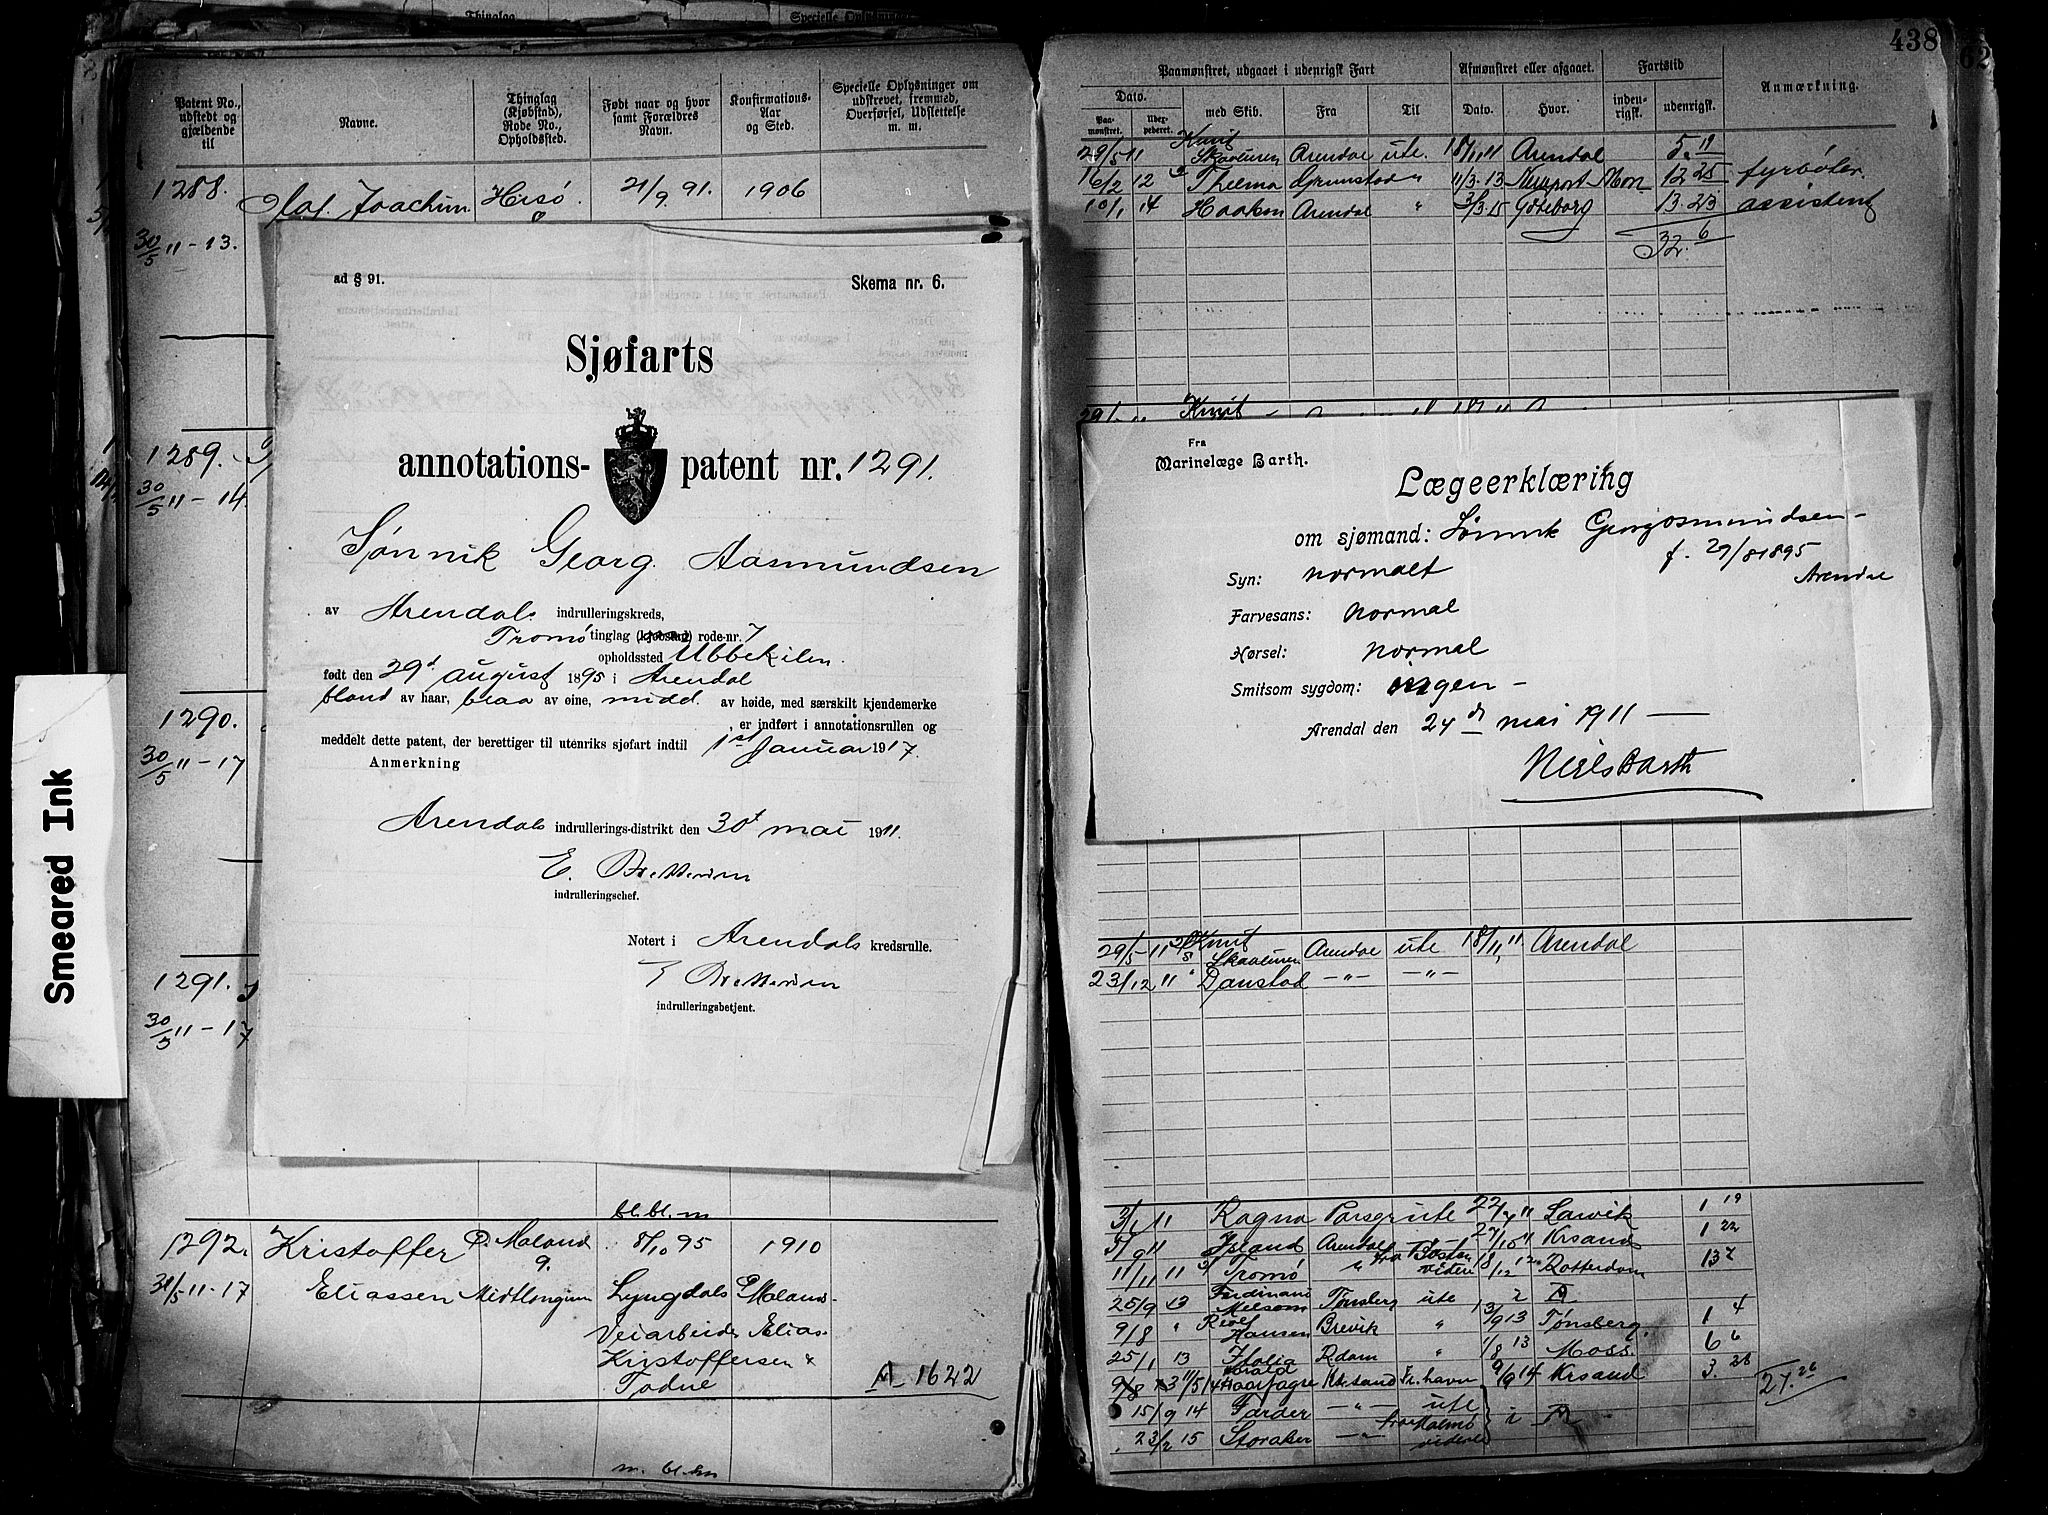 Thinglag
Specielle Oplysninger
438
62
Patent No., udstedt og gjældende til
Navne.
Thinglag (Kjøbstad), Rode No., Opholdsted.
Født naar og hvor samt Forældres Navn.
Konfirmations-Aar og Sted.
Specielle Oplysninger om udskrevet, fremmed, Overførsel, Udslettelse m. m.
1288. Olaf Joachim Hisø 21/9 91. 1906
30/5 11-13.
1289.
30/5 11-14
1290.
30/5 11-17
1291.
30/5 11-17
ad § 91.
Skema nr. 6.
Sjøfarts
annotations-patent nr. 1291.
Sønnik Georg Aasmundsen
av Arendals indrulleringskreds,
Tromø tinglag (kjøbstad) rode-nr. 7
opholdssted Ubbekilen
født den 29d august 1895 i Arendal
blond av haar, blaa av øine, midd. av høide, med særskilt kjendemerke
, er indført i annotationsrullen og
meddelt dette patent, der berettiger til utenriks sjøfart indtil 1st Januar 1917.
Anmerkning
Arendals indrullerings-distrikt den 30d mai 1911.
E.
indrulleringschef.
Notert i Arendals kredsrulle.
E
indrulleringsbetjent.
bl. bl. m
1292. Kristoffer Ø. Moland 8/10 95 1910
9.
31/5 11-17 Eliassen Midtlongum Lyngdals Ø Moland
Veiarbeider Elias
Kristoffersen &
Todne
A 1622
m. bl. bn
Smeared Ink
Paamønstret, udgaaet i udenrigsk Fart
Afmønstret eller afgaaet.
Fartstid
Anmærkning.
Dato.
Paamønstret.
Udexpederet.
med Skib.
Fra
Til
Dato.
Hvor.
indenrigsk.
udenrigsk.
29/5 11 Knut Skaaluren Arendal ute. 18/11 11 Arendal 5. 11
16/2 12 Thelma Grimstad " 11/3. 13 Newport Mon 12 25 fyrbøter
10/1 14 Haakon Arendal " 3/3. 15 Gøteborg 13. 23 assistent
32. 6
29/ Knut
Fra
Marinelæge Barth.
Lægeerklæring
om sjømand: Sønnik Georg Osmundsen -
f. 29/8 1895
Arendal
Syn: normalt
Farvesans: normal
Hørsel: normal
Smitsom sygdom: ingen -
Arendal den 24 de mai 1911
Niels Barth
29/5 - 11 Knut Skaaluren Arendal ute 18/11 11 Arendal
23/12 11 " Danstad -"- -"-
3/1 11 Ragna Porsgr ute 22/7 11 Larvik 1 19
5/9 11 Island Arendal 27/10 11 Krsand 1 22
11/11 11 Tromø " fra Boston videre 18/12 12 Rotterdam 13 2
25/9 13 Ferdinand Melsom Tønsberg ute
9/8 " Rolf Hansen Brevik " 13/9 13 Tønsberg. 1 4
25/1 13 Italia Rdam " 1/8 13 Moss. 6 6
9/8 13 11/5 14 Harald Haarfagre Krsand Fr.havn 9/6 14 Krsand 3. 28
27. 26
15/9 14 Færder -"- ute
23/2 15 Storaker -"- fra Malmø videre